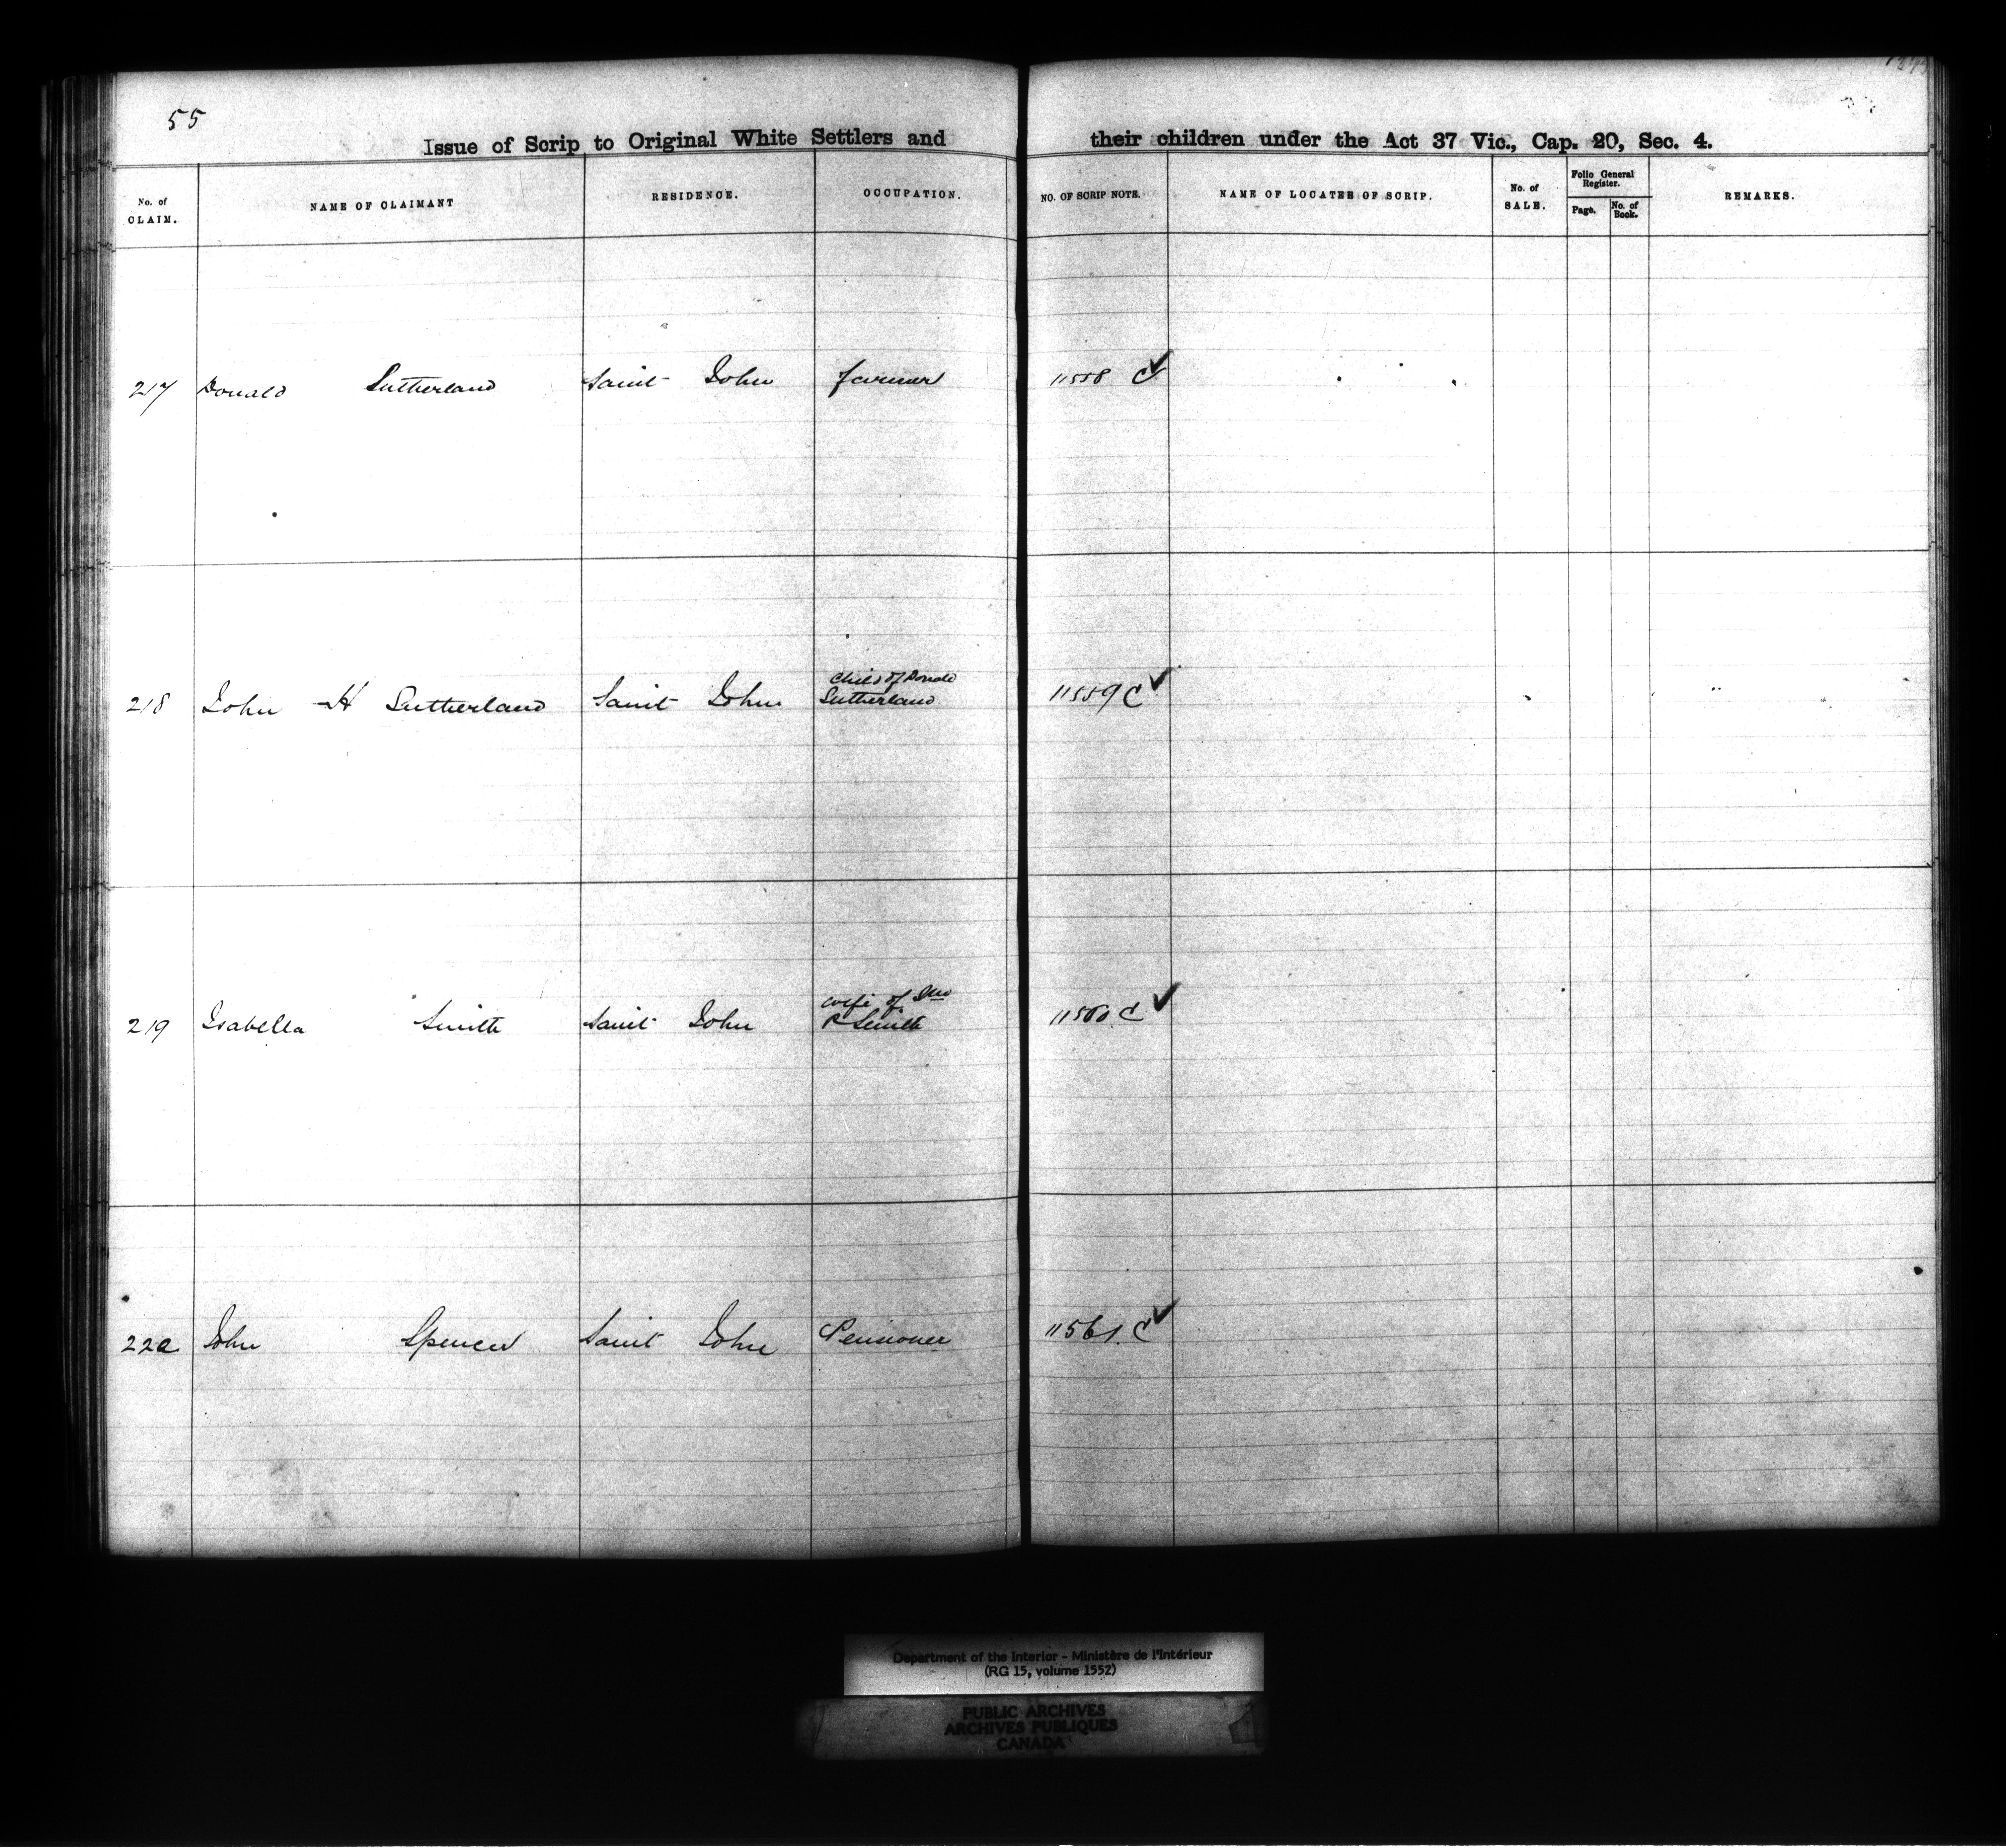 55
Issue of Scrip to Original White Settlers and their children under the Act 37 Vic., Cap. 20, Sec. 4.
No. of CLAIM. NAME OF CLAIMANT RESIDENCE. OCCUPATION. NO. OF SCRIP NOTE. NAME OF LOCATEE OF SCRIP. No. of SALE. Folio General Register. Page. No. of Book. REMARKS.
217 Donald Sutherland Saint John farmer 11558 C ✓
218 John H Sutherland Saint John Child of Donald Sutherland 11559 C ✓
219 Isabella Smith Saint John wife of Jno R Smith 11560 C ✓
220 John Spencer Saint John Pensioner 11561 C ✓
Department of the Interior - Ministère de l'Intérieur
(RG 15, volume 1552)
PUBLIC ARCHIVES
ARCHIVES PUBLIQUES
CANADA